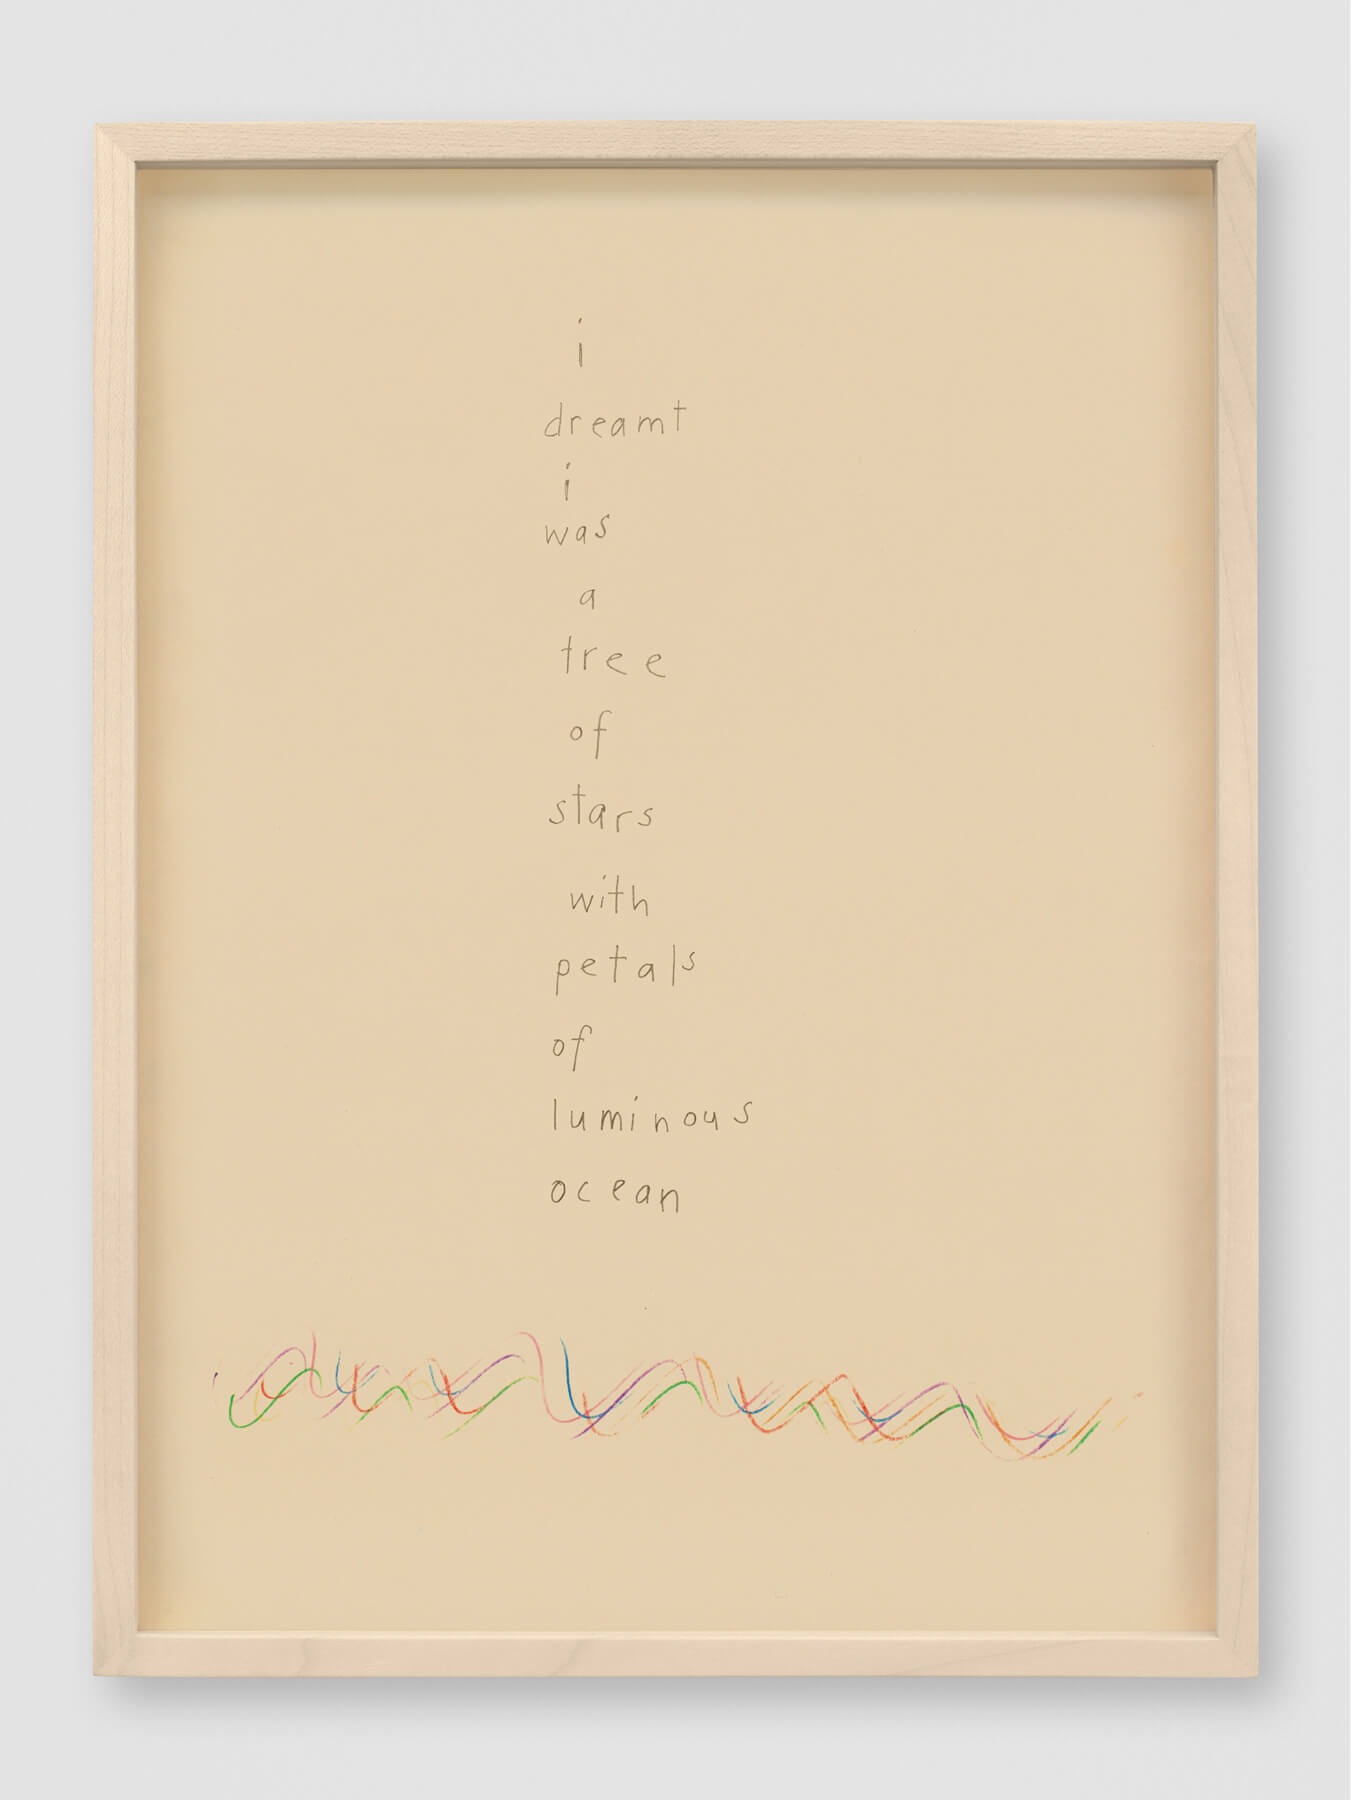 i
dreamt
i
was
a
tree
of
stars
with
petals
of
luminous
ocean